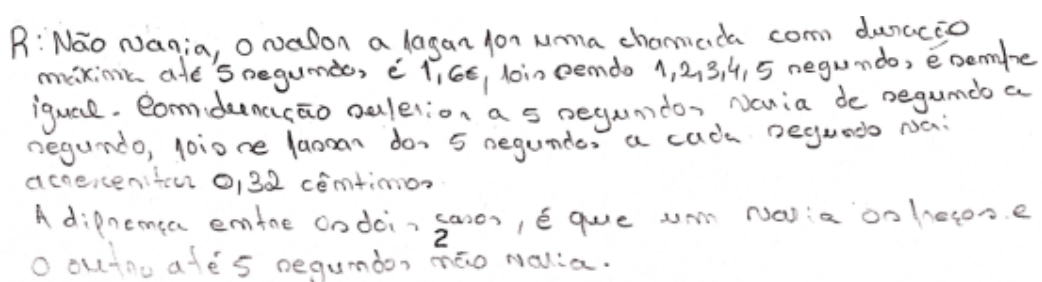 R: Não varia, o valor a pagar por uma chamada com duração
máxima até 5 segundos é 1,6€, pois sendo 1,2,3,4,5 segundos é sempre
igual. Com duração superior a 5 segundos varia de segundo a
segundo, pois se passar dos 5 segundos a cada segundo vai
acrescentar 0,32 cêntimos.
A diferença entre os dois casos, é que um varia os preços e
2
o outro até 5 segundos não varia.